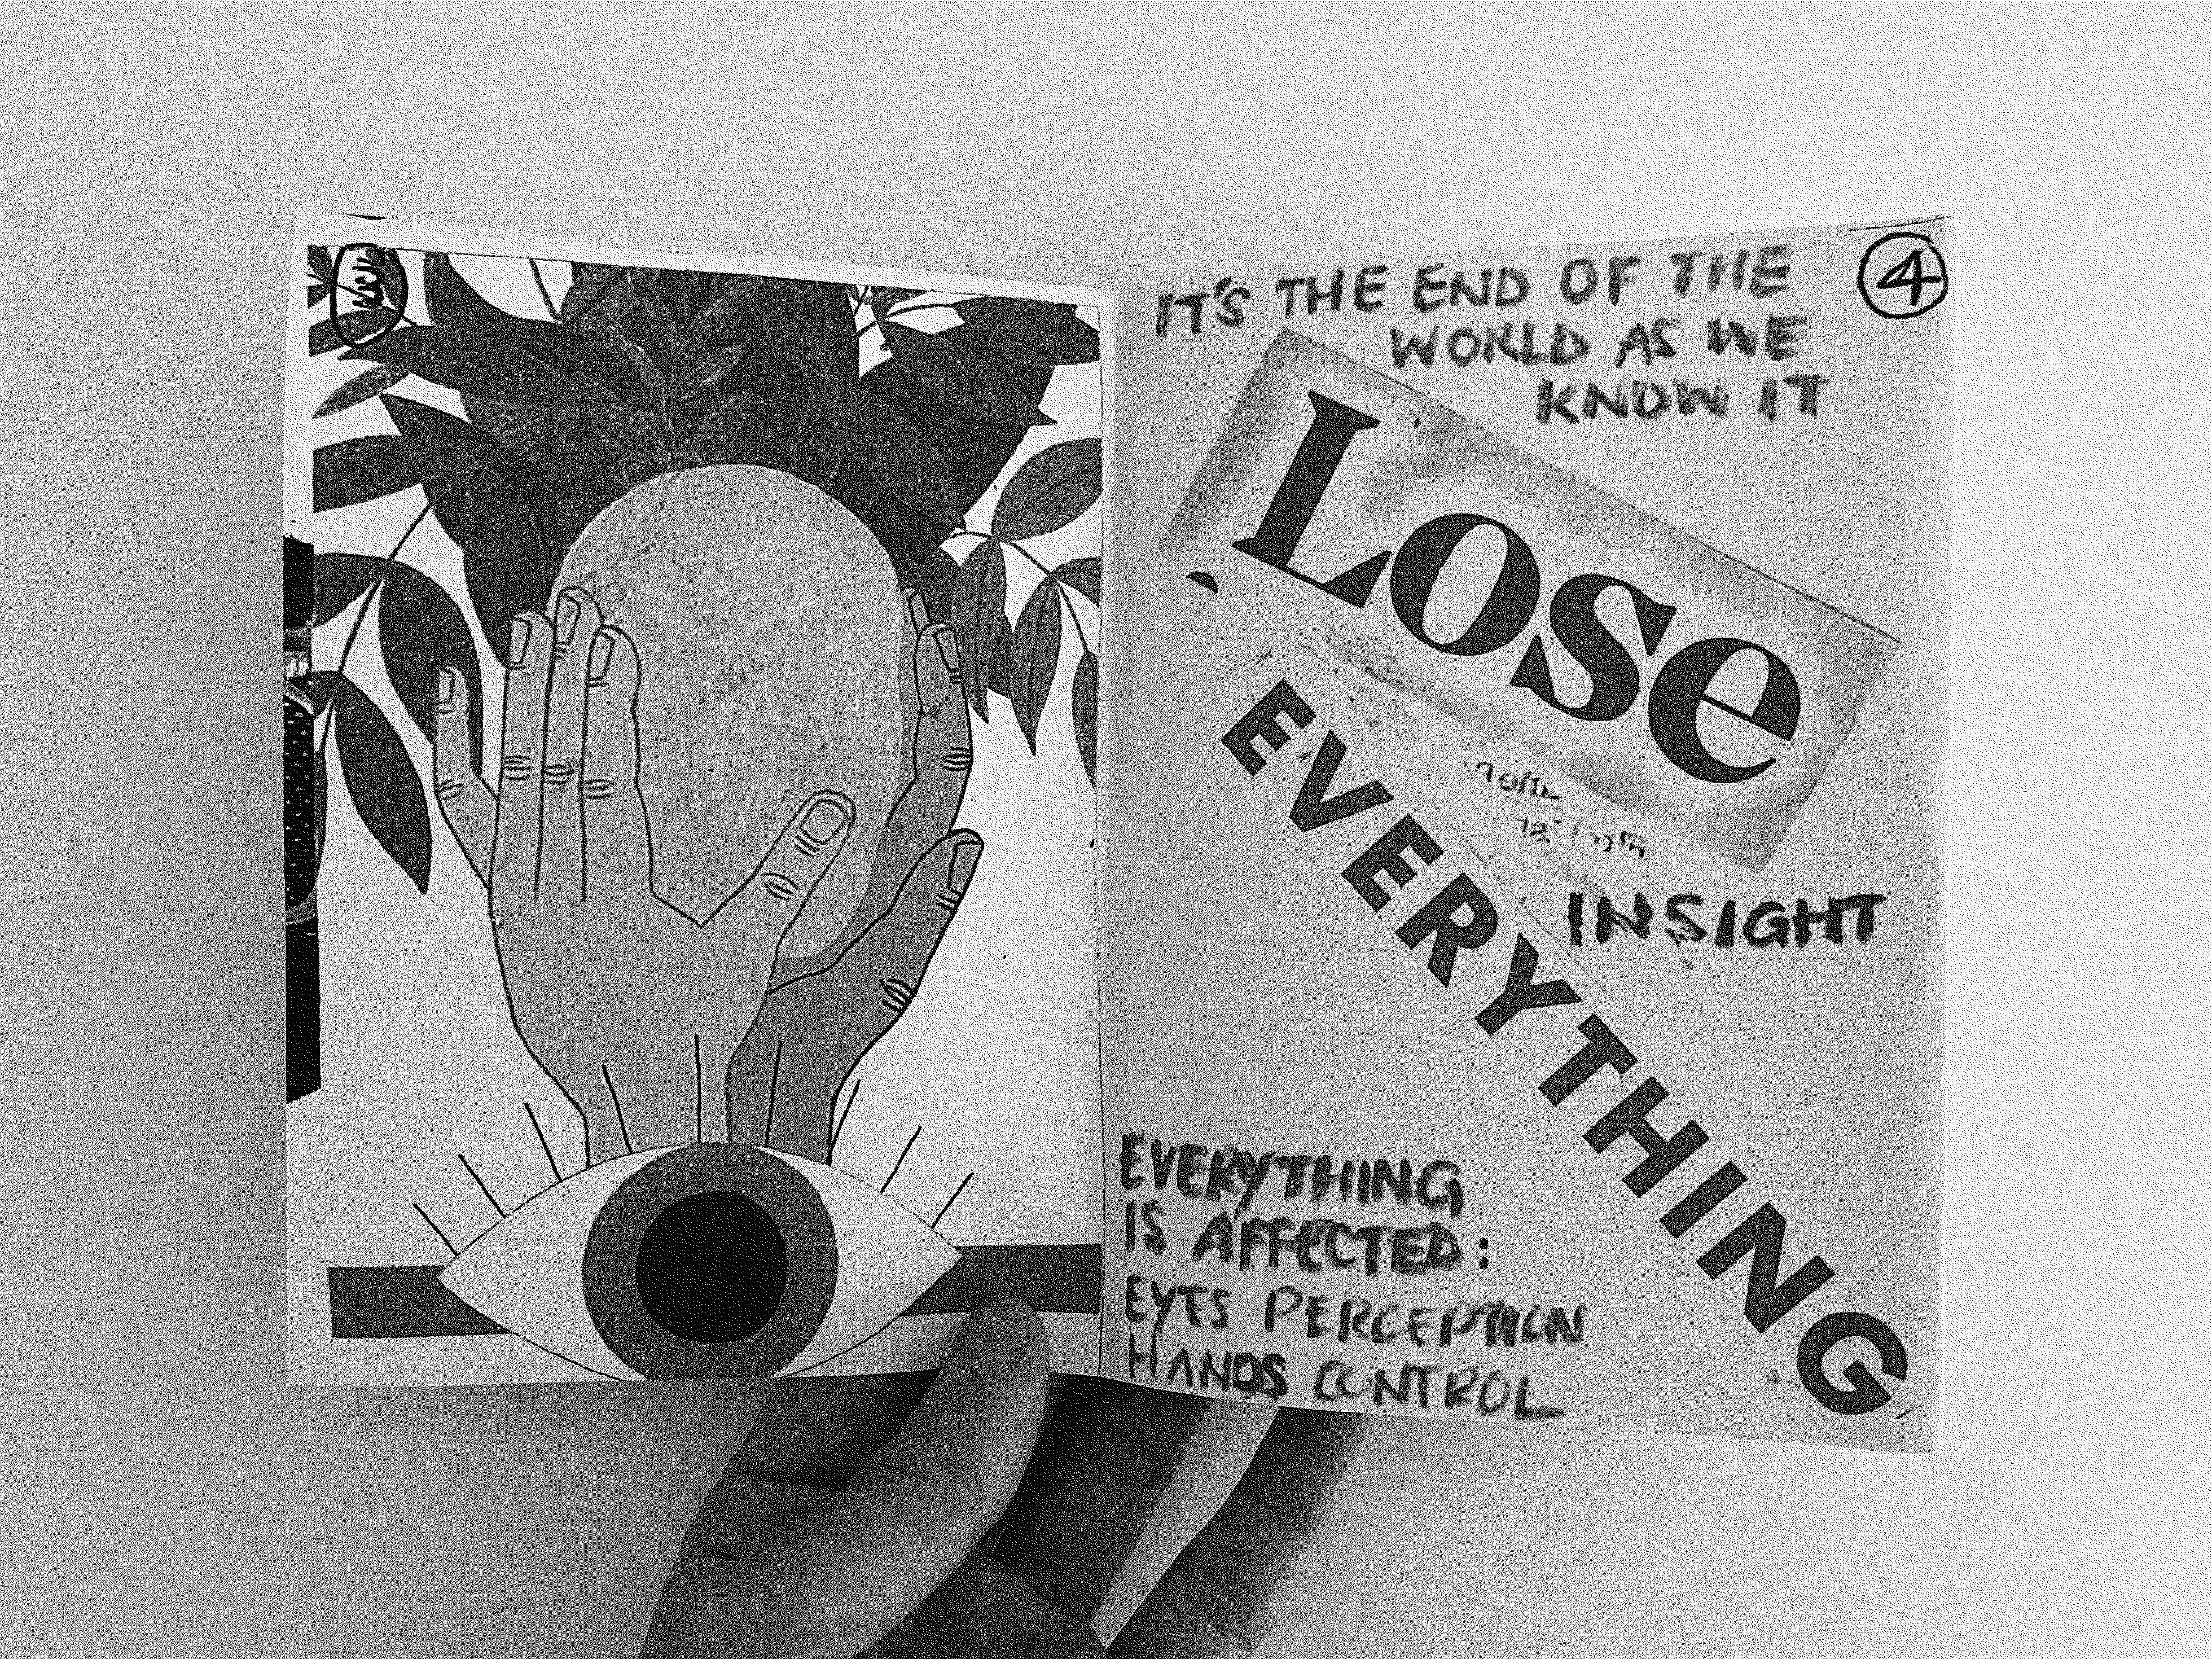 IT'S THE END OF THE
WORLD AS WE
KNOW IT
4
LOSE
EVERYTHING
INSIGHT
EVERYTHING
IS AFFECTED:
EYES PERCEPTION
HANDS CONTROL